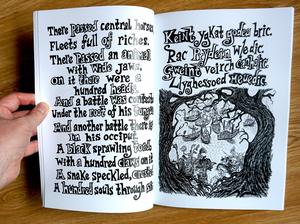 There passed central horses
Fleets full of riches.
There passed an animal
with wide jaws,
On it there were a
hundred heads.
And a battle was contested
Under the root of his tongue
And another battle there is
In his occiput.
A black sprawling toad,
With a hundred claws on it
A snake speckled, crested
A hundred souls through sin
Keint
Rac
Gweint